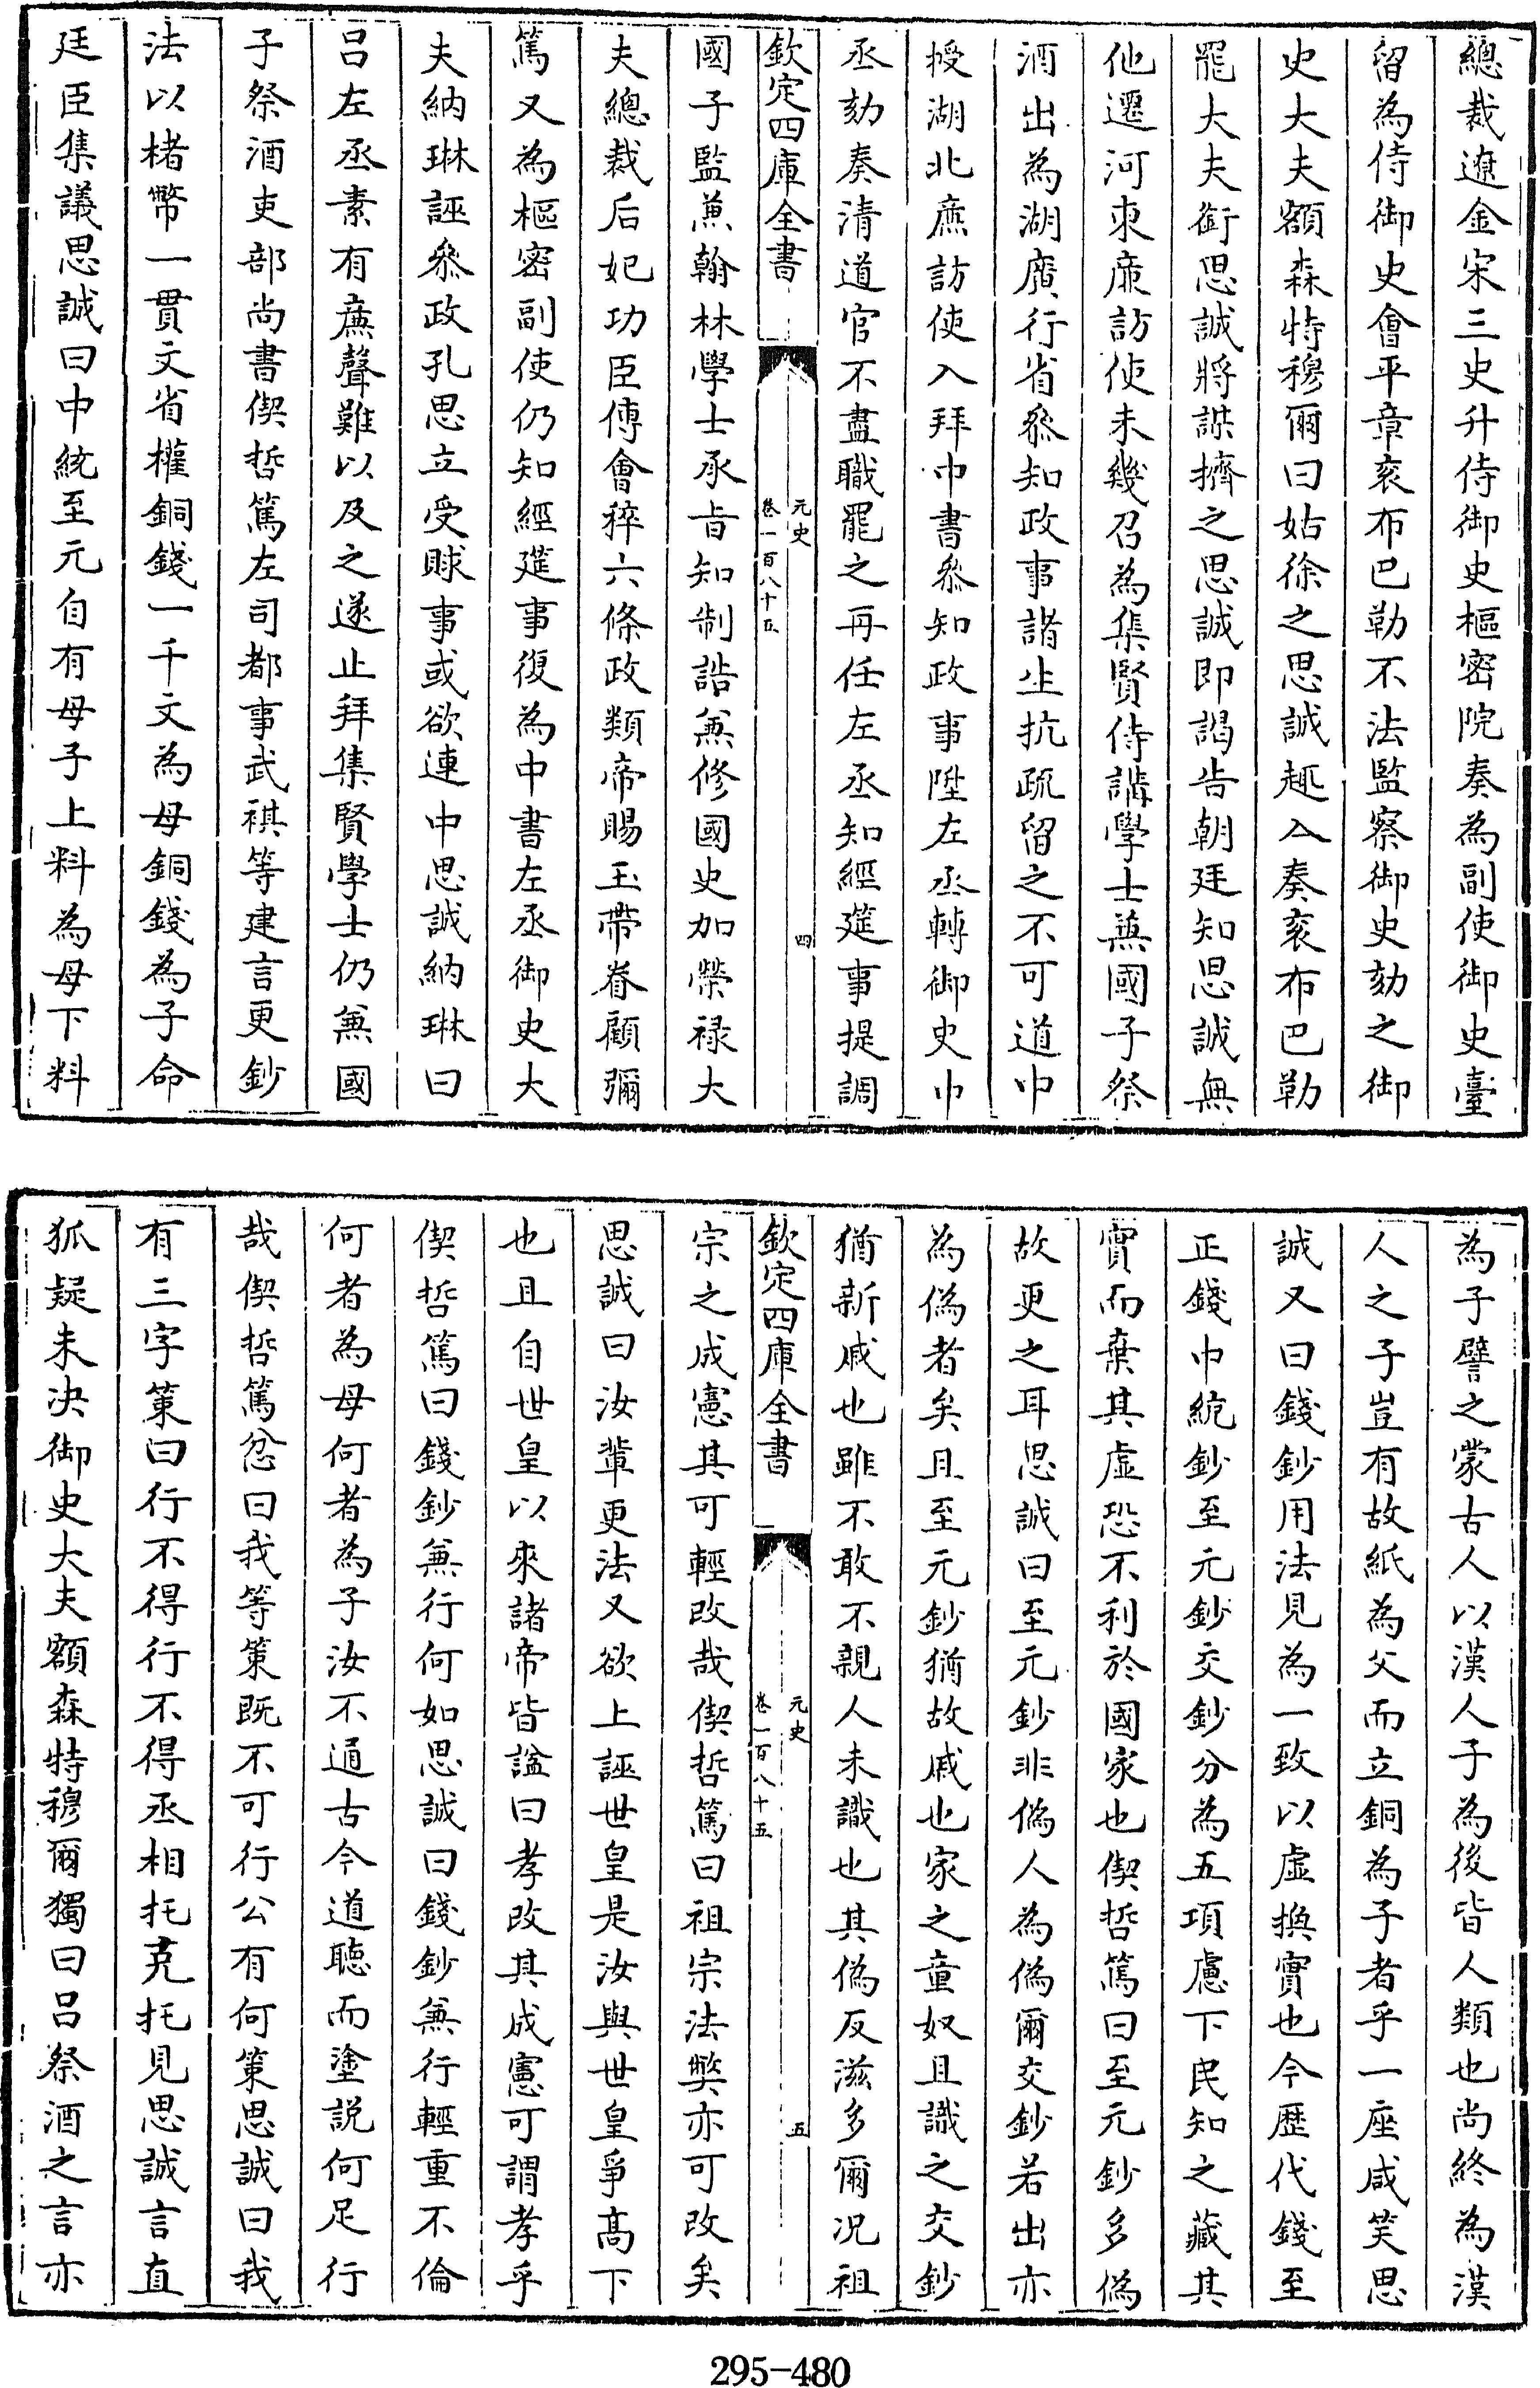 總裁遼金宋三史升侍御史樞密院奏為副使御史臺
留為侍御史會平章衮布巴勒不法監察御史劾之御
史大夫額森特穆爾曰姑徐之思誠趣入奏衮布巴勒
罷大夫銜思誠將謀擠之思誠即謁告朝廷知思誠無
他遷河東廉訪使未幾召為集賢侍講學士兼國子祭
酒出為湖廣行省叅知政事諸生抗疏留之不可道中
授湖北廉訪使入拜中書叅知政事陞左丞轉御史中
丞劾奏清道官不盡職罷之再任左丞知經筵事提調
欽定四庫全書
元史
卷一百八十五
四
國子監兼翰林學士承旨知制誥兼修國史加榮祿大
夫總裁后妃功臣傳會稡六條政類帝賜玉帶眷顧彌
篤又為樞密副使仍知經筵事復為中書左丞御史大
夫納琳誣叅政孔思立受賕事或欲連中思誠納琳曰
呂左丞素有廉聲難以及之遂止拜集賢學士仍兼國
子祭酒吏部尚書偰哲篤左司都事武祺等建言更鈔
法以楮幣一貫文省權銅錢一千文為母銅錢為子命
廷臣集議思誠曰中統至元自有母子上料為母下料
為子譬之蒙古人以漢人子為後皆人類也尚終為漢
人之子豈有故紙為父而立銅為子者乎一座咸笑思
誠又曰錢鈔用法見為一致以虛換實也今歷代錢至
正錢中統鈔至元鈔交鈔分為五項慮下民知之藏其
實而棄其虛恐不利於國家也偰哲篤曰至元鈔多偽
故更之耳思誠曰至元鈔非偽人為偽爾交鈔若出亦
為偽者矣且至元鈔猶故戚也家之童奴且識之交鈔
猶新戚也雖不敢不親人未識也其偽反滋多爾况祖
欽定四庫全書
元史
卷一百八十五
五
宗之成憲其可輕改哉偰哲篤曰祖宗法獘亦可改矣
思誠曰汝輩更法又欲上誣世皇是汝與世皇爭高下
也且自世皇以來諸帝皆諡曰孝改其成憲可謂孝乎
偰哲篤曰錢鈔兼行何如思誠曰錢鈔兼行輕重不倫
何者為母何者為子汝不通古今道聽而塗説何足行
哉偰哲篤忿曰我等策既不可行公有何策思誠曰我
有三字策曰行不得行不得丞相托克托見思誠言直
狐疑未決御史大夫額森特穆爾獨曰呂祭酒之言亦
295-480